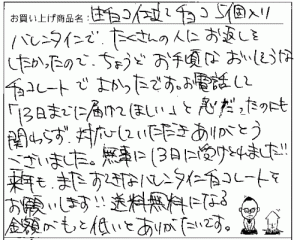 お買い上げ商品名： チョコ 5個入り
バレンタインで、たくさんの人にお返しを
したかったので、ちょうどお手頃なおいしそうな
チョコレートでよかったです。お電話して
「13日までに届けてほしい」と 急だったのにも
関わらず、対応していただきありがとう
ございました。無事に13日に受けとれました!!
来年も、またすてきなバレンタインチョコレートを
お願いします!! 送料無料になる
金額がもっと低いとありがたいです。